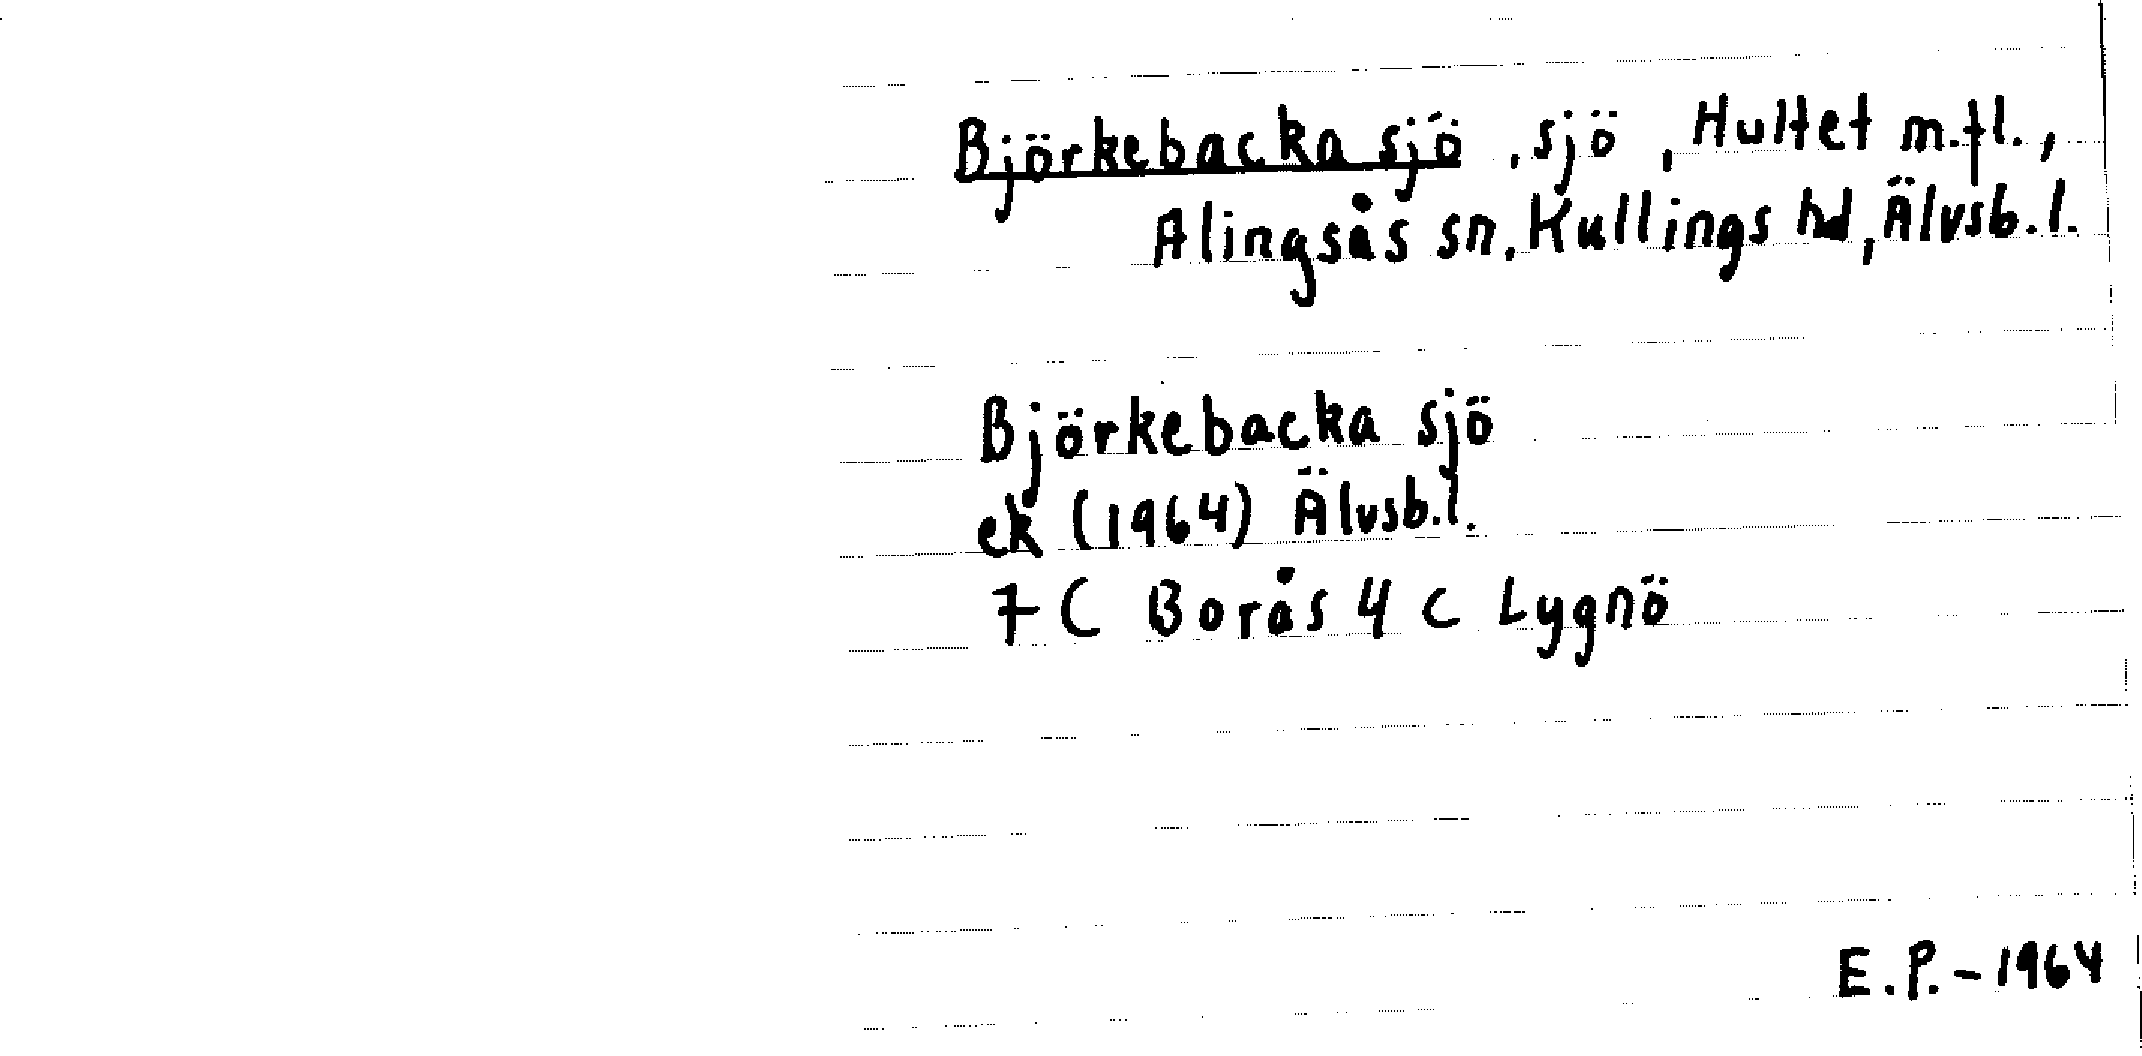 Björkebacka sjö, sjö, Hultet m.fl.,
Alingsås sn, Kullings hd, Älvsb.l.
Björkebacka sjö
ek (1964) Älvsb.l.
7 C Borås 4 c Lygnö
E.P.-1964